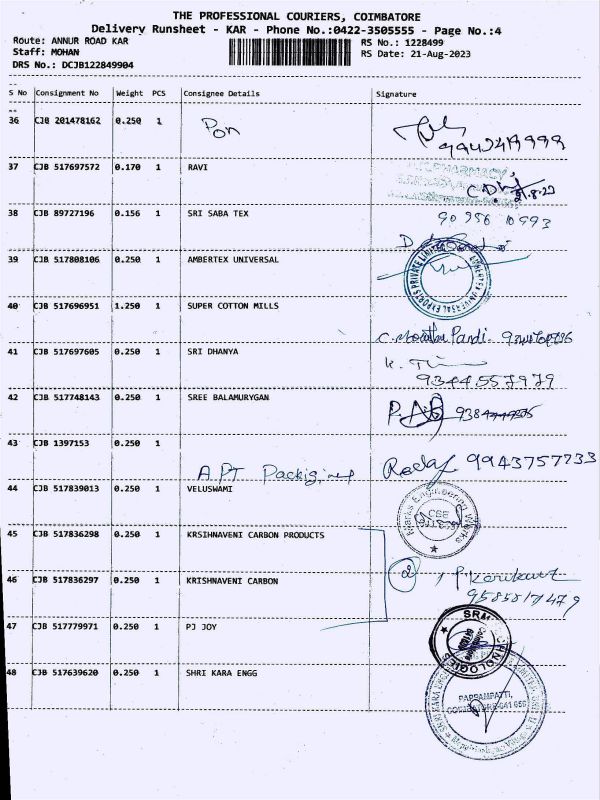 THE PROFESSIONAL COURIERS, COIMBATORE
Delivery Runsheet - KAR - Phone No.:0422-3505555 - Page No.:4
Route: ANNUR ROAD KAR
RS No.: 1228499
Staff: MOHAN
RS Date: 21-Aug-2023
DRS No.: DCJB122849904
S No Consignment No Weight PCS Consignee Details Signature
36 CJB 201478162 0.250 1 Pon
37 CJB 517697572 0.170 1 RAVI
PHARMACY
21.8.23
38 CJB 89727196 0.156 1 SRI SABA TEX
90956 10993
39 CJB 517808106 0.250 1 AMBERTEX UNIVERSAL
40 CJB 517696951 1.250 1 SUPER COTTON MILLS
41 CJB 517697605 0.250 1 SRI DHANYA
9344557979
42 CJB 517748143 0.250 1 SREE BALAMURYGAN
43 CJB 1397153 0.250 1 A.P.T
9943757233
44 CJB 517839013 0.250 1 VELUSWAMI
Engineering Works
CBE
45 CJB 517836298 0.250 1 KRSIHNAVENI CARBON PRODUCTS
46 CJB 517836297 0.250 1 KRISHNAVENI CARBON
2
47 CJB 517779971 0.250 1 PJ JOY
SRM TECHNOLOGIES
48 CJB 517639620 0.250 1 SHRI KARA ENGG
PAPPAMPATTI,
COIMBATORE-641 659